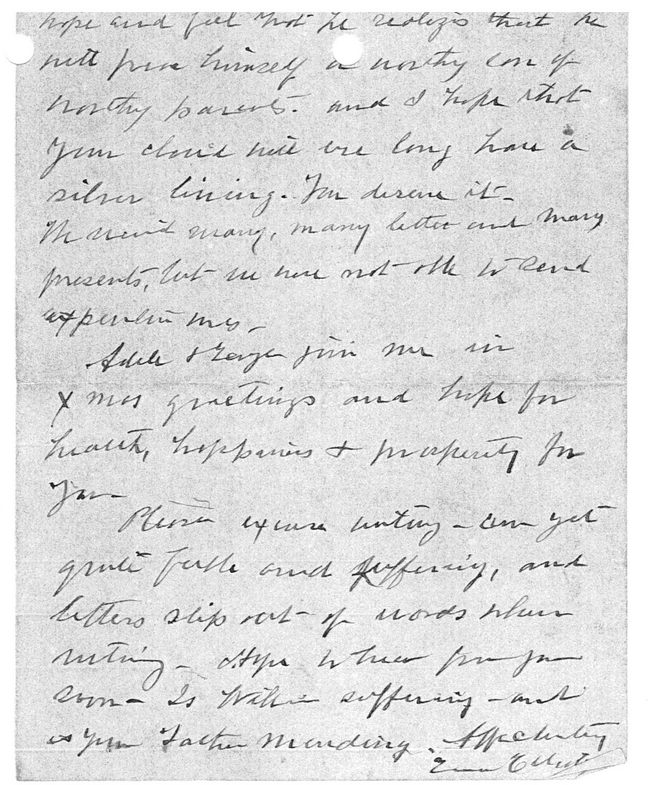 hope and feel that he realizes that he
will prove himself a worthy son of
worthy parents. and I hope that
your cloud will ere long have a
silver lining. You deserve it -
We rec'd many, many letters and many
presents, but we were not able to send
expensive ones -
Adele & join me in
Xmas greetings and hope for
health, happiness & prosperity for
you -
Please excuse writing - am yet
quite feeble and suffering, and
letters slip out of words when
writing - Hope to hear from you
soon - Is Willie suffering - and
is your Father mending. Affectionately